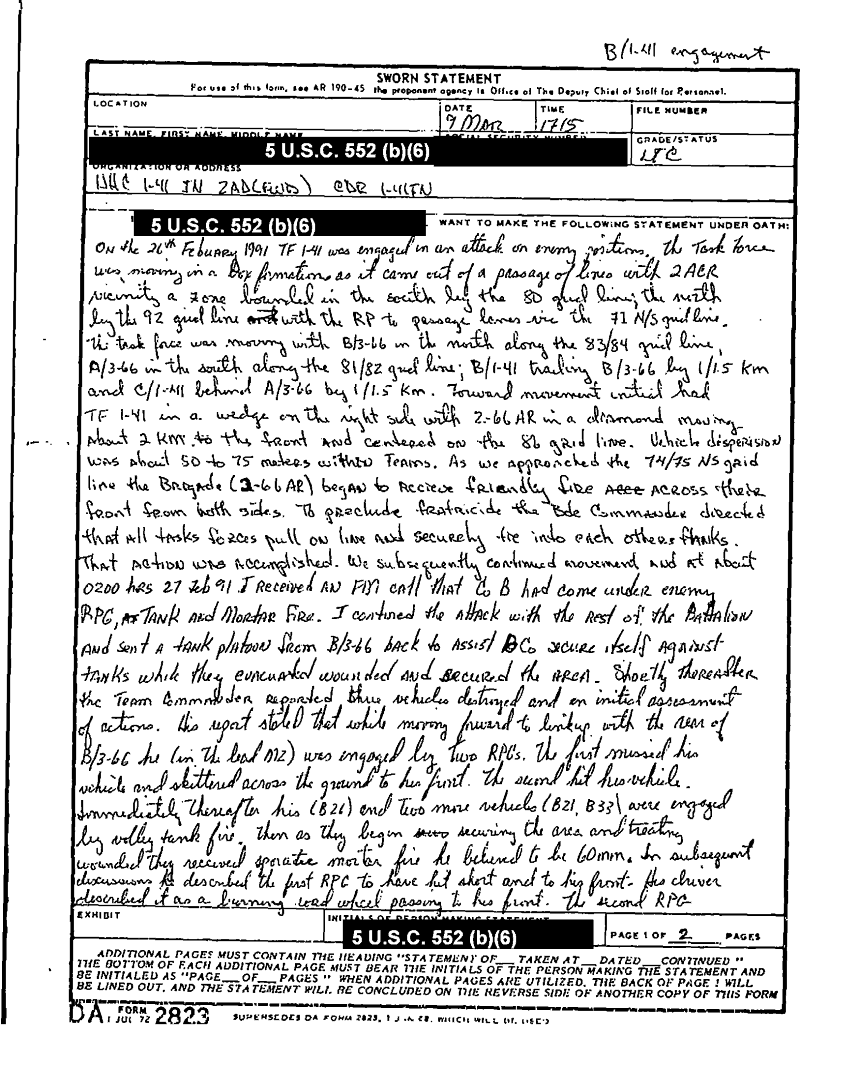 B/1-41 engagement
SWORN STATEMENT
For use of this form, see AR 190-45 the proponent agency is Office of The Deputy Chief of Staff for Personnel.
LOCATION
DATE
9 MAR
TIME
1715
FILE NUMBER
LAST NAME, FIRST NAME, MIDDLE NAME
SOCIAL SECURITY NUMBER
GRADE/STATUS
5 U.S.C. 552 (b)(6)
LTC
ORGANIZATION OR ADDRESS
HHC 1-41 IN 2AD(FWD) CDR 1-41IN
5 U.S.C. 552 (b)(6)
WANT TO MAKE THE FOLLOWING STATEMENT UNDER OATH:
On the 26th Febuary 1991 TF 1-41 was engaged in an attack on enemy positions. The Task Force
was moving in a Box formation as it came out of a passage of lines with 2ACR
vicinity a zone bounded in the south by the 80 grid line; the north
by the 92 grid line and with the RP to passage lanes via the 71 N/S grid line.
The task force was moving with B/3-66 in the north along the 83/84 grid line,
A/3-66 in the south along the 81/82 grid line; B/1-41 trailing B/3-66 by 1/1.5 Km
and C/1-41 behind A/3-66 by 1/1.5 Km. Forward movement initial had
TF 1-41 in a wedge on the right side with 2-66 AR in a diamond moving
about 2 KM to the front and centered on the 86 grid line. Vehicle disperision
was about 50 to 75 meters within Teams. As we approached the 74/75 NS grid
line the Brigade (2-66 AR) began to recieve friendly fire across their
front from both sides. To preclude fratricide the Bde Commander directed
that all tasks forces pull on line and securely tie into each others flanks.
That action was accomplished. We subsequently continued movement and at about
0200 hrs 27 Feb 91 I received an FM call that Co B had come under enemy
RPG, Tank and Mortar Fire. I contined the attack with the rest of the Battalion
and sent a tank platoon from B/3-66 back to assist BCo secure itself against
tanks while they evacuated wounded and secured the area. Shortly thereafter
the Team Commander reported three vehicles destroyed and an initial assessment
of actions. His report stated that while moving forward to linkup with the rear of
B/3-66 he (in the lead M2) was engaged by two RPGs. The first missed his
vehicle and skittered across the ground to his front. The second hit his vehicle.
Immediately thereafter his (B26) and two more vehicles (B21, B33) were engaged
by volley tank fire. Then as they begin securing the area and treating
wounded they received sporatic mortar fire he believed to be 60mm. In subsequent
discussions he described the first RPG to have hit short and to his front. His driver
described it as a burning road wheel passing to his front. The second RPG
EXHIBIT
INITIALS OF PERSON MAKING STATEMENT
5 U.S.C. 552 (b)(6)
PAGE 1 OF 2 PAGES
ADDITIONAL PAGES MUST CONTAIN THE HEADING "STATEMENT OF___ TAKEN AT___ DATED___CONTINUED"
THE BOTTOM OF EACH ADDITIONAL PAGE MUST BEAR THE INITIALS OF THE PERSON MAKING THE STATEMENT AND
BE INITIALED AS "PAGE___OF___PAGES" WHEN ADDITIONAL PAGES ARE UTILIZED, THE BACK OF PAGE 1 WILL
BE LINED OUT, AND THE STATEMENT WILL BE CONCLUDED ON THE REVERSE SIDE OF ANOTHER COPY OF THIS FORM
DA FORM 1 JUL 72 2823
SUPERSEDES DA FORM 2823, 1 JAN 68, WHICH WILL BE USED